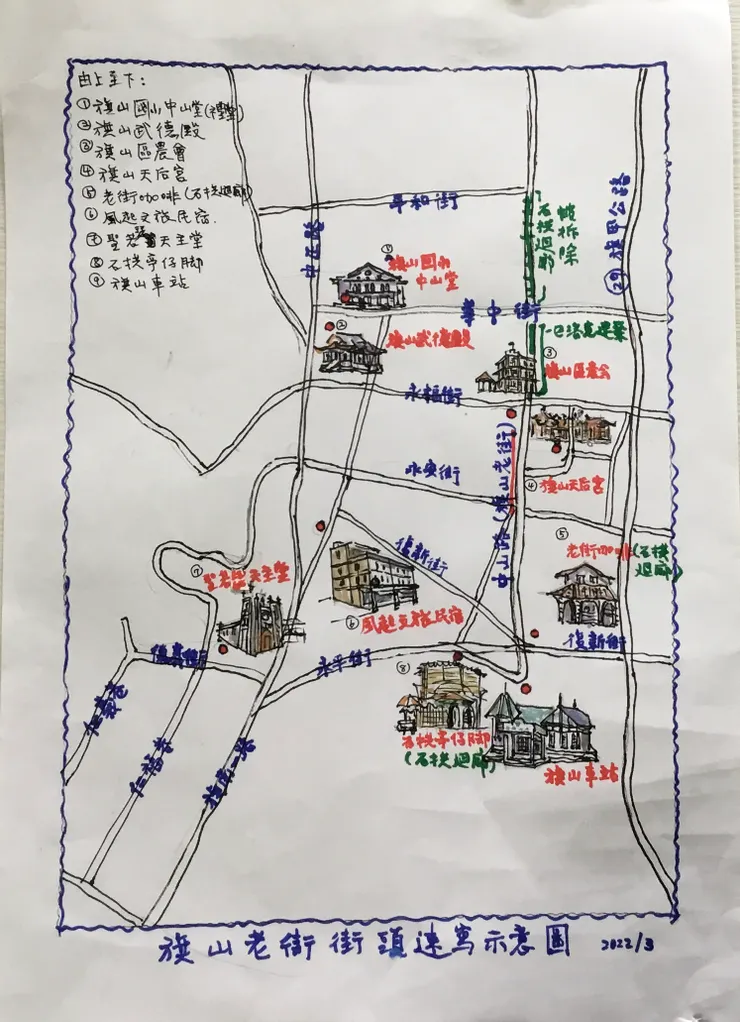 由上至下：
①旗山國小中山堂(禮堂)
②旗山武德殿
③旗山區農會
④旗山天后宮
⑤老街咖啡(石拱迴廊)
⑥風起文旅民宿.
⑦聖若瑟天主堂
⑧石拱亭仔腳
⑨旗山車站
平和街
中正路
石拱迴廊
被拆除
29旗甲公路
①
旗山國小
中山堂
華中街
②
旗山武德殿
巴洛克建築
③
旗山區農会
永福街
中山路(旗山老街)
永安街
④旗山天后宮
⑤
老街咖啡(石拱
迴廊)
復新街
⑦
聖若瑟天主堂
⑥風起文旅民宿
復新街
永平街
⑧
石拱亭仔腳
(石拱迴廊)
旗山車站
旗山老街街頭速寫示意圖 2022/3